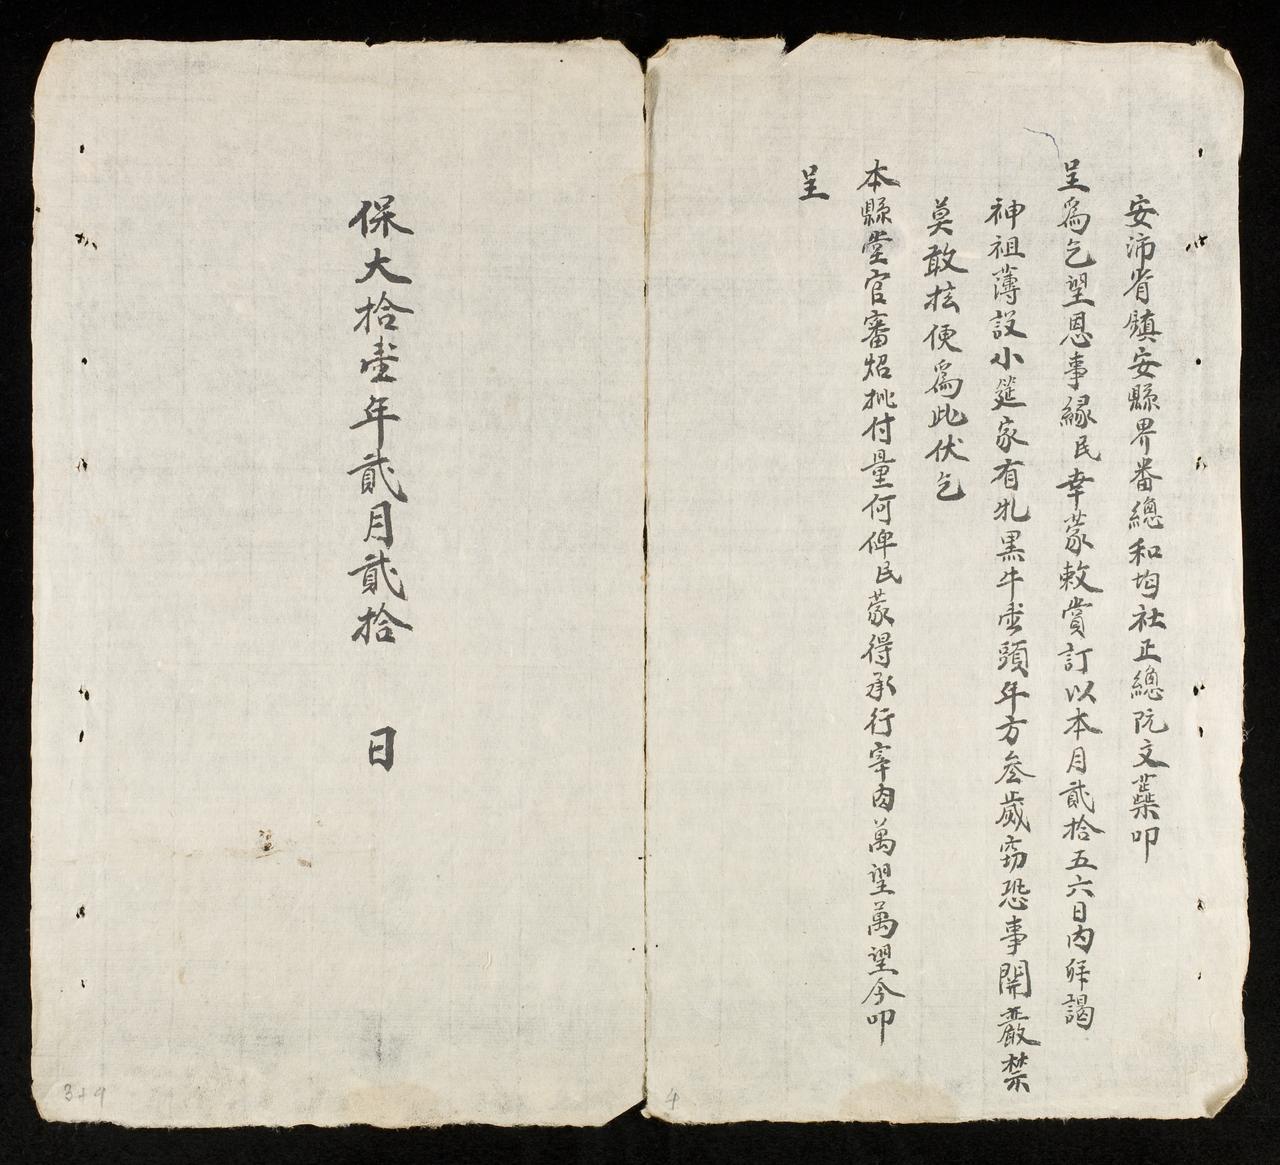 安沛省鎮安縣界番總和均社正總阮文蘃叩
呈爲乞望恩事緣民幸蒙敕賞訂以本月貳拾五六日內拜謁
神祖薄設小筵家有牝黑牛壹頭年方叁歲竊恐事關嚴禁
莫敢擅便爲此伏乞
本縣堂官審炤批付量何俾民蒙得承行宰肉萬望萬望今叩
呈
保大拾壹年貳月貳拾 日
4
3+9